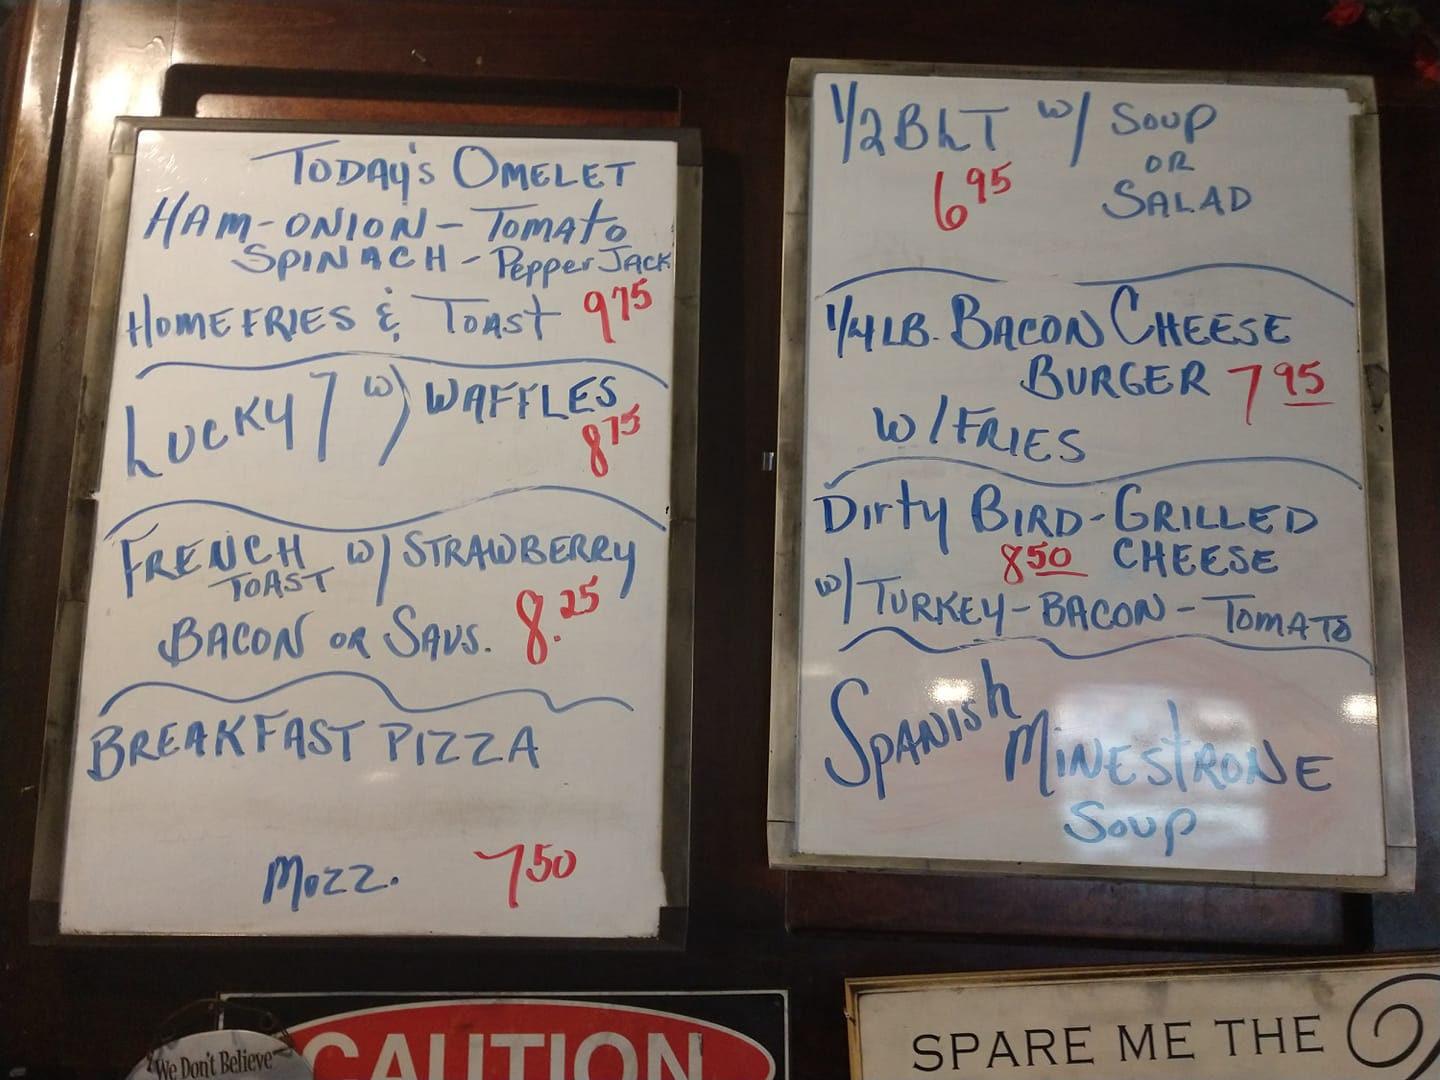 TODAY'S OMELET
HAM-ONION-TOMATO
SPINACH-Pepper JACK
HOMEFRIES & TOAST 9 75
LUCKY 7 w/ WAFFLES
8 75
FRENCH TOAST w/ STRAWBERRY
BACON OR SAUS. 8.25
BREAKFAST PIZZA
MOZZ. 7 50
1/2 BLT w/ SOUP
OR
6 95 SALAD
1/4 LB. BACON CHEESE
BURGER 7 95
W/FRIES
Dirty BIRD-GRILLED
8 50 CHEESE
w/ TURKEY-BACON-TOMATO
SPANISh MINESTRONE
SOUP
We Don't Believe
CAUTION
SPARE ME THE